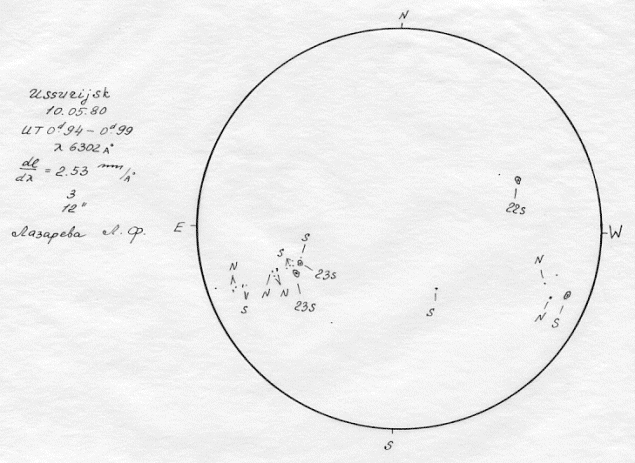 Ussurijsk
10.05.80
UT 0ᵈ94 – 0ᵈ99
λ 6302 Å
dl/dλ = 2.53 mm/Å
3
12"
Лазарева Л. Ф.
N
22s
E
W
S
S
N
23s
N
N N
23s
S
S
N
S
S